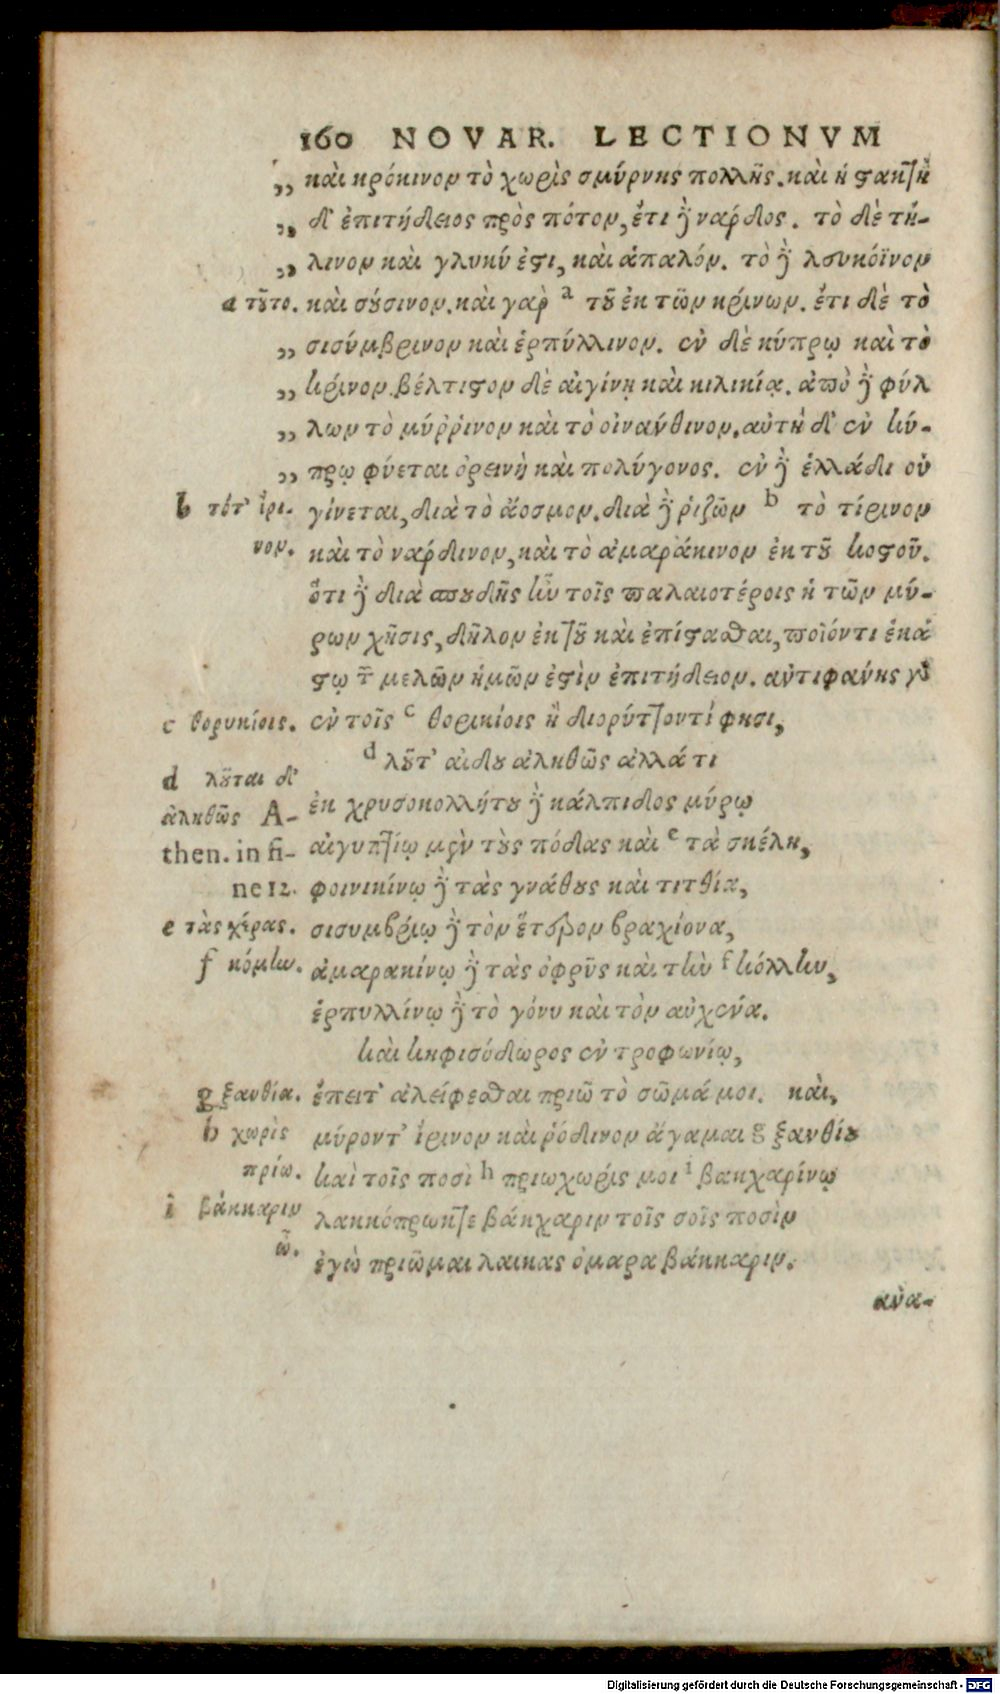 160 NOVAR. LECTIONVM
,, καὶ κρόκινον τὸ χωρὶς σμύρνης πολλῆς. καὶ ἡ στακτὴ
,, δ' ἐπιτήδειος πρὸς πότον, ἔτι δὲ νάρδος. τὸ δὲ τή-
,, λινον καὶ γλυκύ ἐστι, καὶ ἁπαλόν. τὸ δὲ λευκόϊνον
a τοῦτο. καὶ σούσινον. καὶ γαρ a τοῦ ἐκ τῶν κρίνων. ἔτι δὲ τὸ
,, σισύμβρινον καὶ ἑρπύλλινον. ἐν δὲ κύπρῳ καὶ τὸ
,, κρίνον. βέλτιστον δὲ αἰγίνῃ καὶ κιλικίᾳ. ἀπὸ δὲ φύλ
,, λων τὸ μύῤῥινον καὶ τὸ οἰνάνθινον. αὐτὴ δ' ἐν κύ-
,, πρῳ φύεται ὀρεινὴ καὶ πολύγονος. ἐν δὲ ἑλλάδι οὐ
b τότ' ἴρι- γίνεται, διὰ τὸ ἄοσμον. διὰ δὲ ῥιζῶν b τὸ τίρινον
νον. καὶ τὸ νάρδινον, καὶ τὸ ἀμαράκινον ἐκ τοῦ κοστοῦ.
ὅτι δὲ διὰ σπουδῆς ἦν τοῖς παλαιοτέροις ἡ τῶν μύ-
ρων χῆσις, δῆλον ἐκ τοῦ καὶ ἐπίστασθαι, ποῖόντι ἑκά
στῳ τῶν μελῶν ἡμῶν ἐστὶν ἐπιτήδειον. ἀντιφάνης γοῦ
c θορυκίοις. ἐν τοῖς c θορικίοις ἢ διορύττοντί φησι,
d λοῦται δ' d λοῦτ' αιδου ἀληθῶς ἀλλά τι
ἀληθῶς A- ἐκ χρυσοκολλήτου δὲ κάλπιδος μύρῳ
then. in fi- αἰγυπτίῳ μὲν τοὺς πόδας καὶ e τὰ σκέλη,
ne 12. φοινικίνῳ δὲ τὰς γνάθους καὶ τιτθία,
e τὰς χεῖρας. σισυμβρίῳ δὲ τὸν ἕτερον βραχίονα,
f κόμην. ἀμαρακίνῳ δὲ τὰς ὀφρῦς καὶ τὴν f κόλλην,
ἑρπυλλίνῳ δὲ τὸ γόνυ καὶ τὸν αὐχένα.
καὶ κηφισόδωρος ἐν τροφωνίῳ,
g ξανθία. ἔπειτ' ἀλείφεσθαι πριῶ τὸ σῶμά μοι. καὶ,
h χωρὶς μύροντ' ἴρινον καὶ ῥόδινον ἄγαμαι g ξανθίου
πρίω. καὶ τοῖς ποσὶ h πριωχωρίς μοι i βακχαρίνῳ
i βάκκαριν λακκόπρωκτε βάκχαριν τοῖς σοῖς ποσὶν
ὦ. ἐγὼ πριῶμαι λαικας ὁμαρα βάκκαριν.
ἀνα-
Digitalisierung gefördert durch die Deutsche Forschungsgemeinschaft - DFG